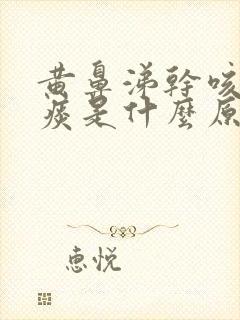 黄鼻涕幹咳
痰是什麼原
惠悦